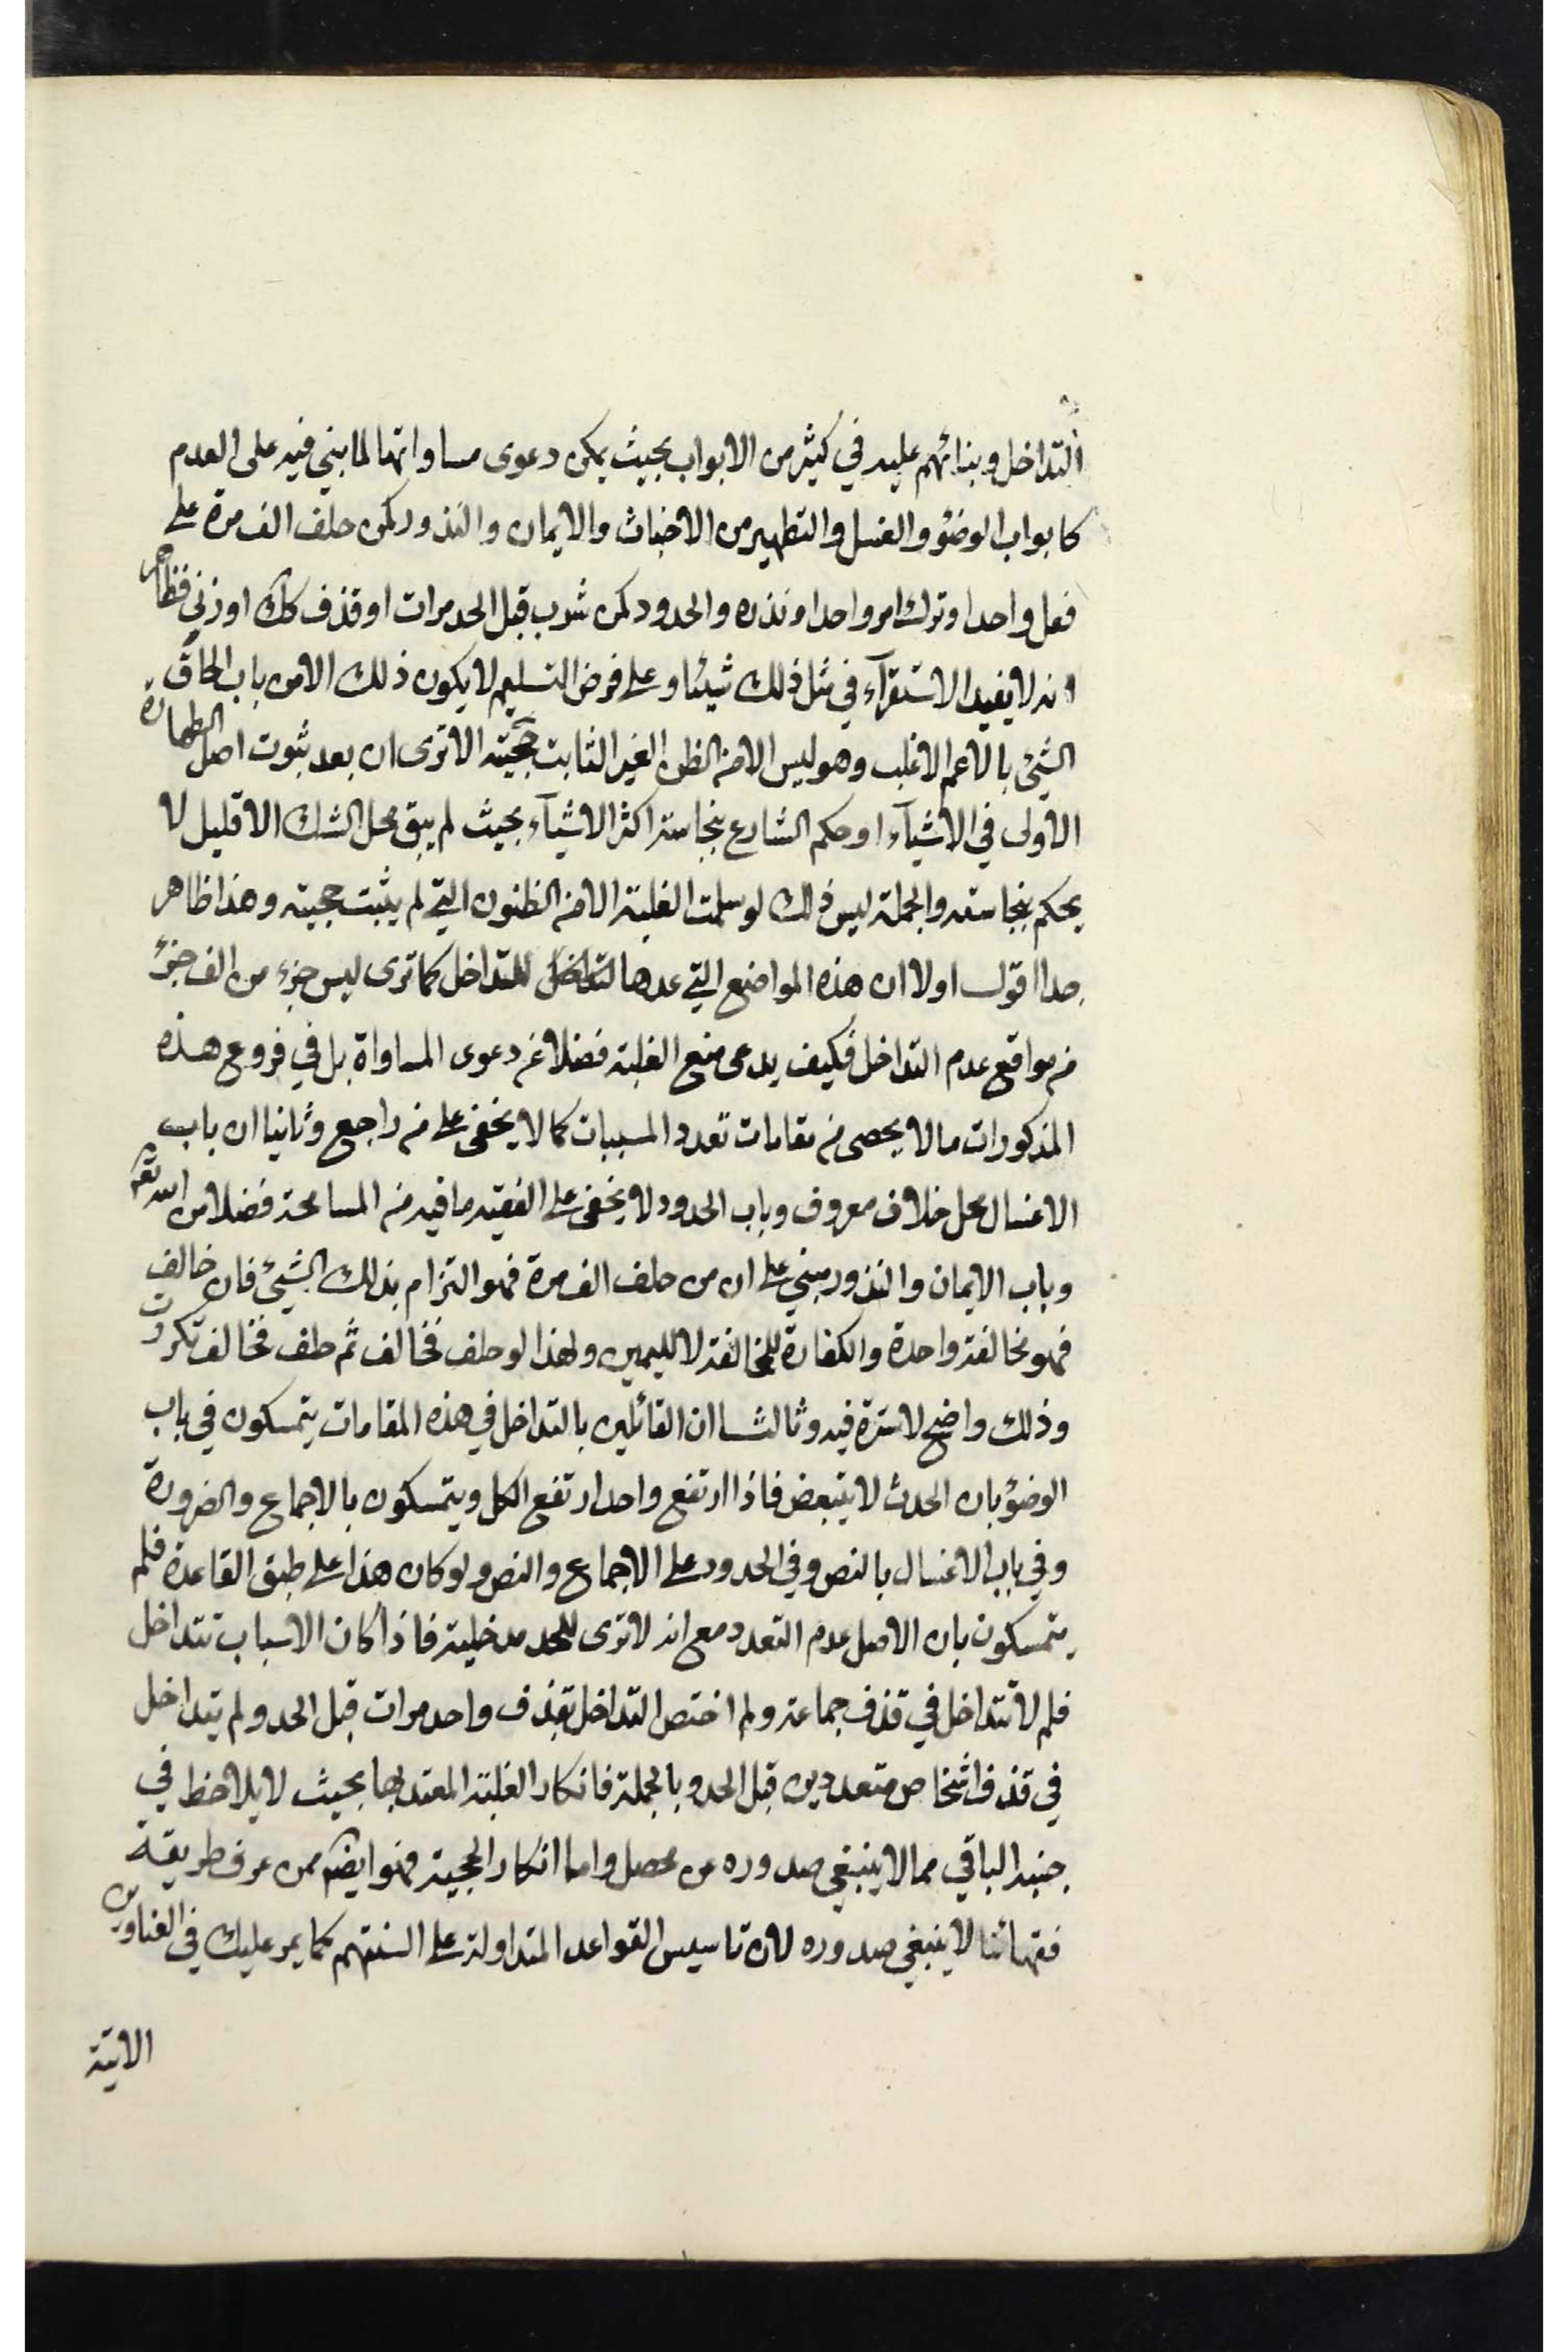 التداخل وبنائهم عليه في كثير من الابواب بحيث يمكن دعوى مساواتها لما بني فيه على العدم
كابواب الوضؤ والغسل والتطهير من الاخباث والايمان والنذور كمن حلف الف مرة على
فعل واحد او ترك امر واحد او نذره والحدود كمن شرب قبل الحد مرات او قذف كك او زنى فظاهر
انه لا يفيد الاستقرآء في مثل ذلك شيئا وعلى فرض التسليم لا يكون ذلك الا من باب الحاق
الشيئ بالاعم الاغلب وهو ليس الا من الظن الغير الثابت حجيته الا ترى ان بعد ثبوت اصل الطهارة
الاولى في الاشيآء او حكم الشارع بنجاسة اكثر الاشيآء بحيث لم يبق محل الشك الا قليل لا
يحكم بنجاسته والجملة ليس ذلك لو سلمت الغلبة الا من الظنون التي لم يثبت حجيته وهذا ظاهر
جدا اقول اولا ان هذه المواضع التي عدها للتداخل كما ترى ليس جزء من الف جزء
من مواقع عدم التداخل فكيف يدعى منع الغلبة فضلا عن دعوى المساواة بل في فروع هذه
المذكورات ما لا يحصى من مقامات تعدد المسببات كما لا يخفى على من راجع وثانيا ان باب
الاغسال محل خلاف معروف وباب الحدود لا يخفى على الفقيه ما فيه من المسامحة فضلا من الله تعالى
وباب الايمان والنذور مبني على ان من حلف الف مرة فهو التزام بذلك الشيئ فان خالف
فهو مخالفة واحدة والكفارة للمخالفة لا لليمين ولهذا لو حلف فخالف ثم حلف فخالف تكررت
وذلك واضح لا سترة فيه وثالثا ان القائلين بالتداخل في هذه المقامات يتمسكون في باب
الوضؤ بان الحدث لا يتبعض فاذا ارتفع واحد ارتفع الكل ويتمسكون بالاجماع والضرورة
وفي باب الاغسال بالنص وفي الحدود على الاجماع والنص ولو كان هذا على طبق القاعدة فلم
يتمسكون بان الاصل عدم التعدد مع انه لا ترى للحد مدخلية فاذا كان الاسباب تتداخل
فلم لا تتداخل في قذف جماعة ولم اختص التداخل بقذف واحد مرات قبل الحد ولم يتداخل
في قذف اشخاص متعددين قبل الحد وبالجملة فانكار الغلبة المعتد بها بحيث لا يلاحظ في
جنبه الباقي مما لا ينبغي صدوره عن محصل واما انكار الحجية فهو ايضا ممن عرف طريقة
فقهائنا لا ينبغي صدوره لان تاسيس القواعد المتداولة على السنتهم كما يمر عليك في العناوين
الاتية